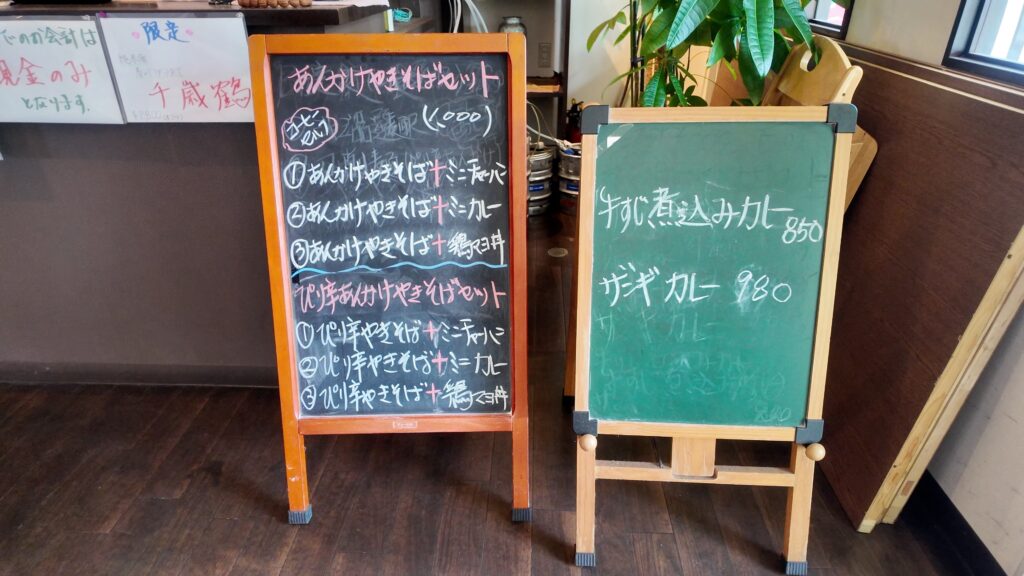 でのお会計は
現金のみ
となります。
限定
千歳鶴
あんかけやきそばセット
コーヒー
つき
(1,000)
①あんかけやきそば+ミニチャーハン
②あんかけやきそば+ミニカレー
③あんかけやきそば+鶏マヨ丼
ぴり辛あんかけやきそばセット
①ぴり辛やきそば+ミニチャーハン
②ぴり辛やきそば+ミニカレー
③ぴり辛やきそば+鶏マヨ丼
牛すじ煮込みカレー
850
ザンギカレー 980